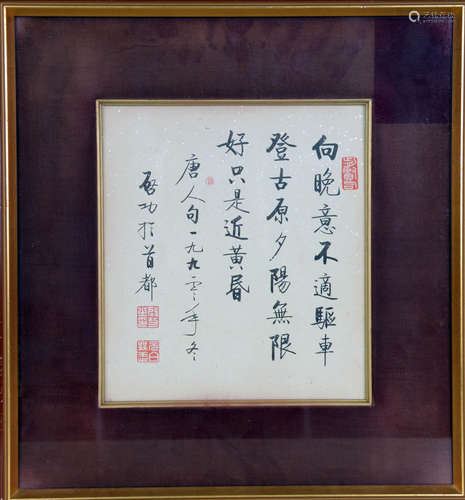 向晚意不適驅車
登古原夕陽無限
好只是近黃昏
唐人句一九九零年冬
啟功於首都